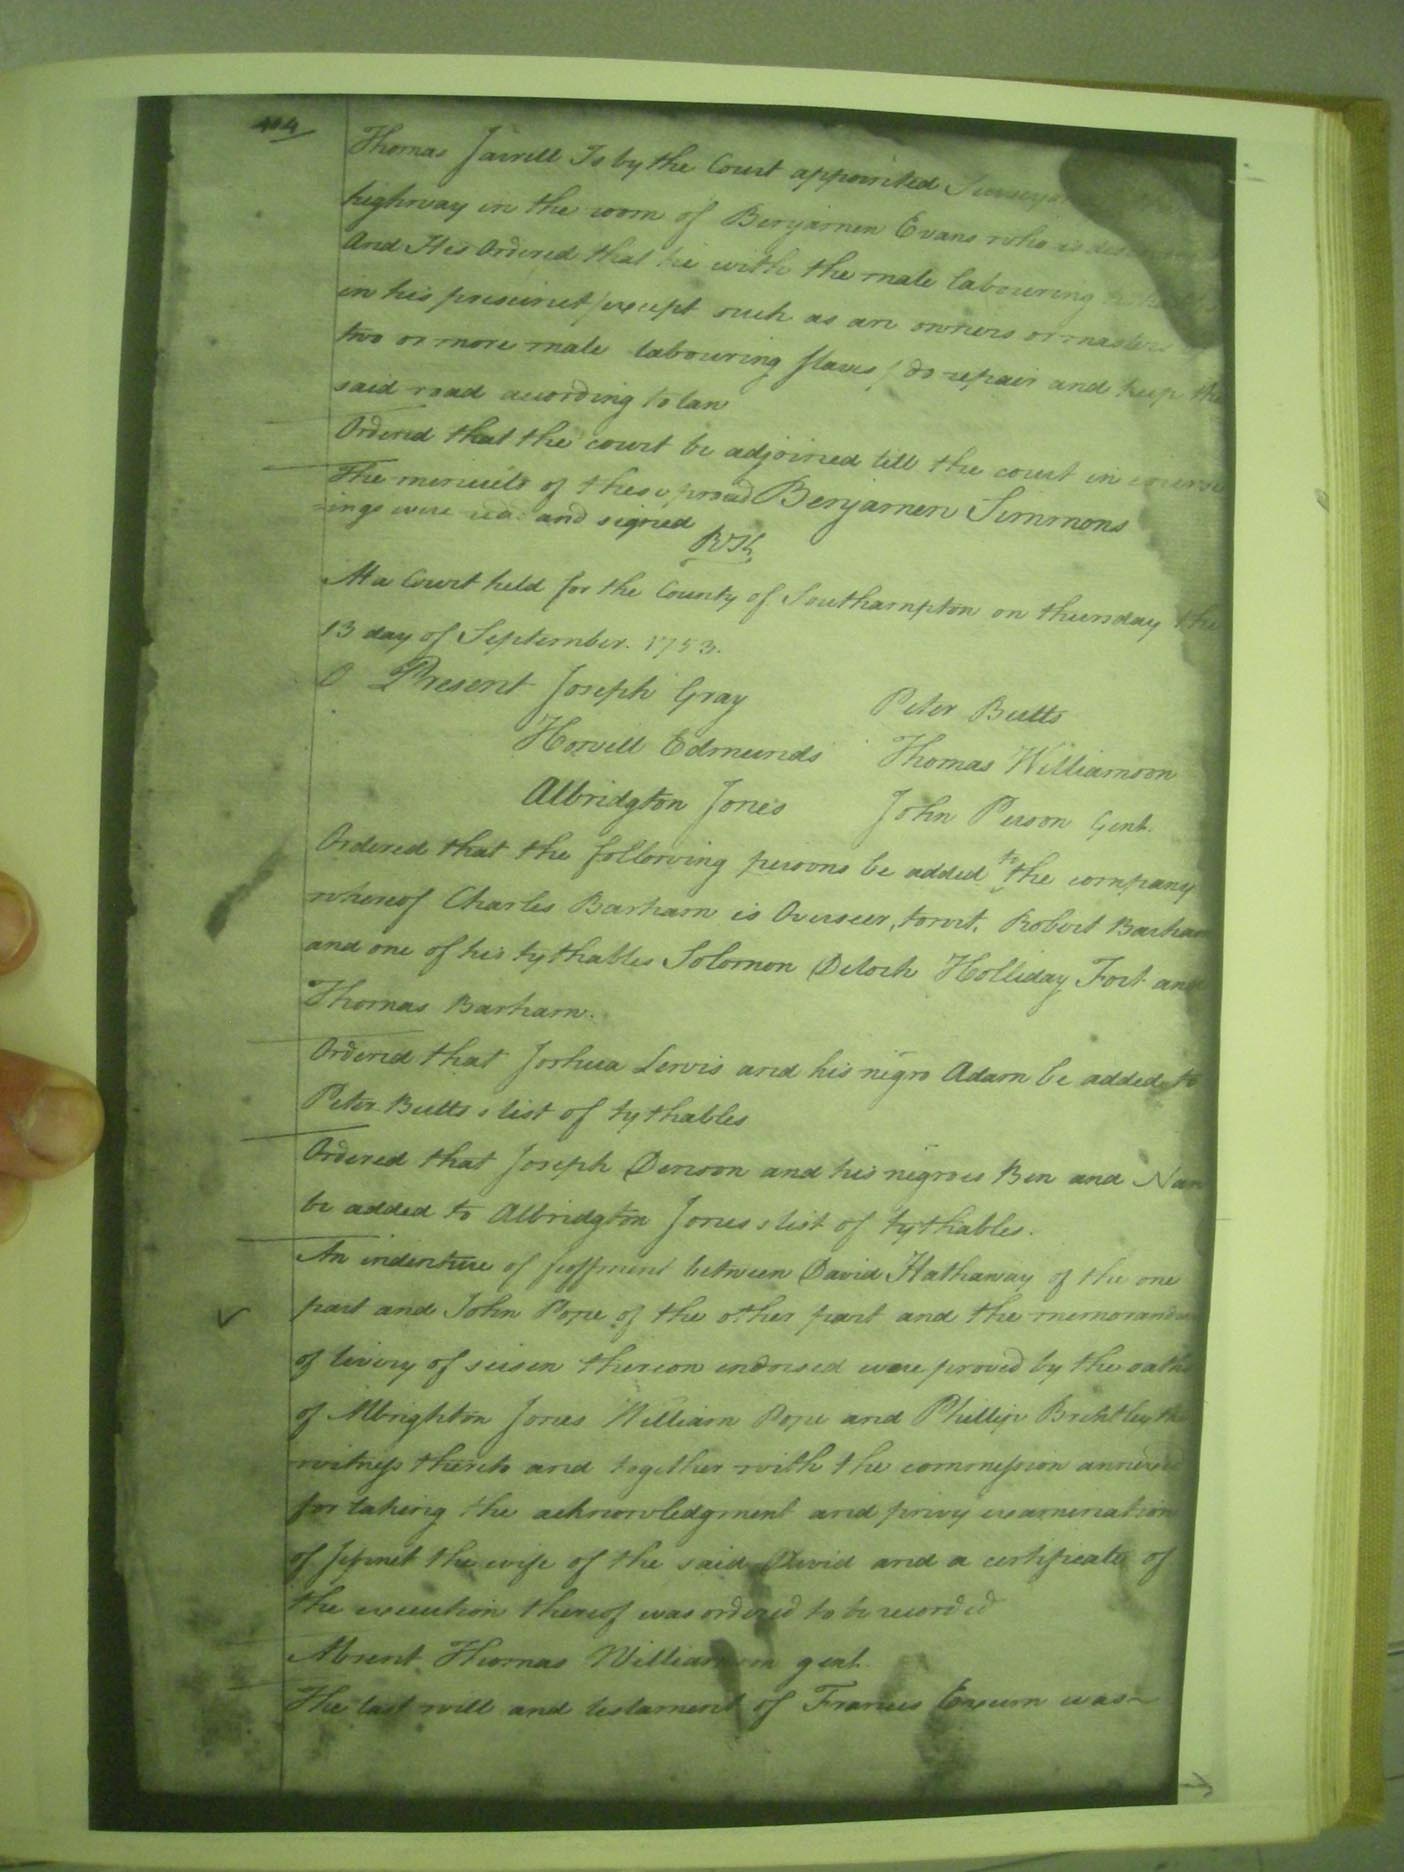 404
Thomas Jarrell Is by the Court appointed Surveyor
highway in the room of Benjamen Evans who is
And Its Ordered that he with the male labouring
in his precinct (except such as are owners or masters
two or more male labouring slaves) do repair and keep the
said road acording to law
Ordered that the court be adjoined till the court in course
The meneuits of these proad Benjamen Simmons
-ings were red and signed
At a Court held for the County of Southampton on thursday the
13 day of September. 1753.
Present Joseph Gray Peter Butts
Howell Edmunds Thomas Williamson
Albridgton Jones John Person Gent.
Ordered that the following persons be added to the company
whereof Charles Barham is Overseer, towit, Robert Barham
and one of his tythables Solomon Deloch Holliday Fort and
Thomas Barham.
Ordered that Joshua Lewis and his negro Adam be added to
Peter Butts s list of tythables
Ordered that Joseph Denson and his negroes Ben and Nan
be added to Albridgton Jones s list of tythables.
An indenture of feoffment between David Hathaway of the one
part and John Pope of the other part and the memorandum
of livery of seisen thereon endorsed were proved by the oaths
of Albrighton Jones William Pope and Phillip the
witness thereto and together with the commession annexed
for taking the acknowledgment and privy examenation
of the wife of the said David and a certificate of
the execution thereof was ordered to be recorded
Absent Thomas Williamson gent.
The last will and testament of Frances was